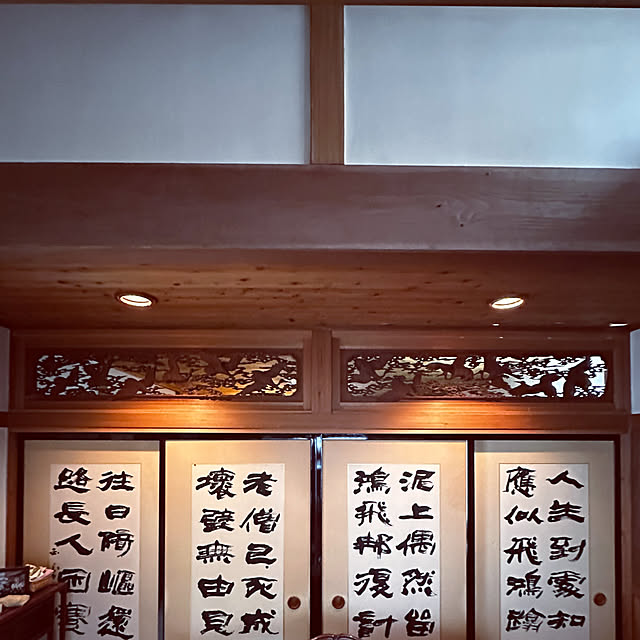 人生到處知
應似飛鴻踏
泥上偶然留
鴻飛那復計
老僧已死成
壞壁無由見
往日崎嶇還
路長人困蹇